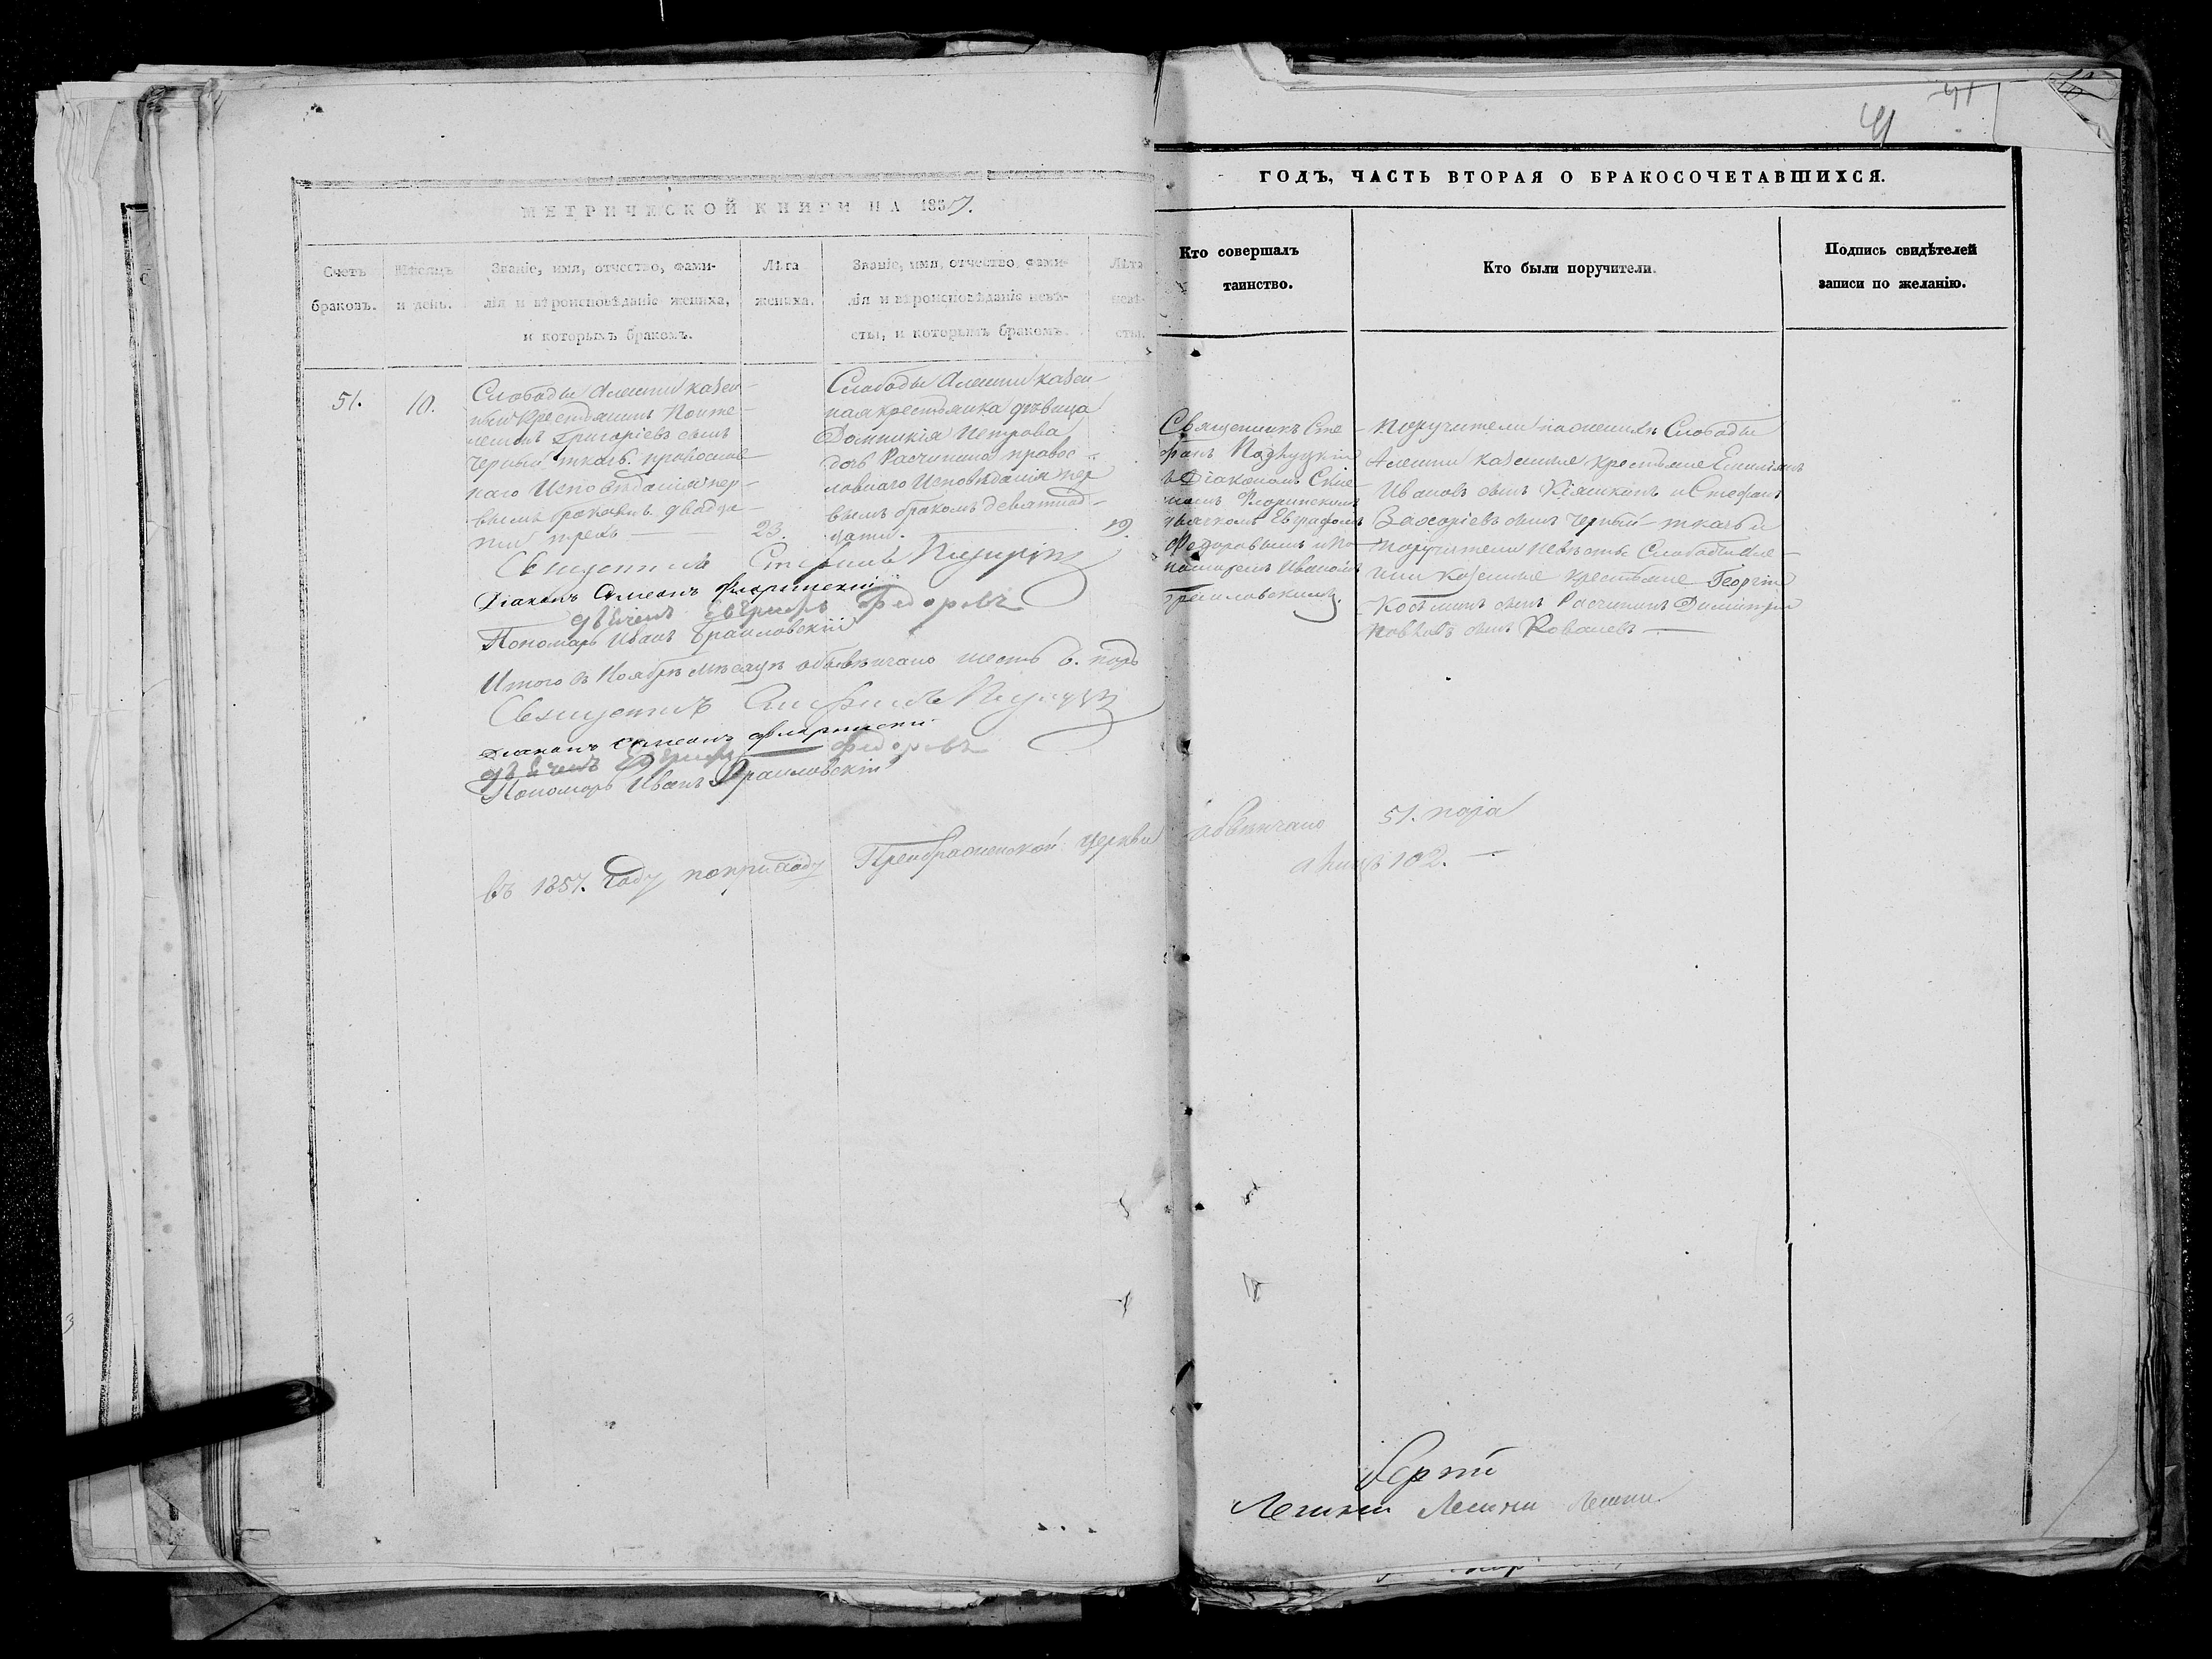 41
41
МЕТРИЧЕСКОЙ КНИГИ НА 1857.
ГОДЪ, ЧАСТЬ ВТОРАЯ О БРАКОСОЧЕТАВШИХСЯ.
Счетъ
браковъ.
Мѣсяцъ
и день.
Званіе, имя, отчество, фами-
лія и вѣроисповѣданіе жениха,
и которымъ бракомъ.
Лѣта
жениха.
Званіе, имя, отчество, фами-
лія и вѣроисповѣданіе невѣ-
сты, и которымъ бракомъ.
Лѣта
невѣ-
сты.
Кто совершалъ
таинство.
Кто были поручители.
Подпись свидѣтелей
записи по желанію.
51.
10.
Слободы Алешни казен-
ный крестьянинъ Понте-
леимонъ Григоріевъ сынъ
Черный ткачь православ-
наго Исповѣданія пер-
вымъ бракомъ двадца-
ти трехъ
23.
Слободы Алешни казен-
ная крестьянка дѣвица
Домникія Петрова
дочь Расчипина правос-
лавнаго Исповѣданія пер
вымъ бракомъ девятнад-
цати.
19.
Священникъ Сте-
фанъ
съ Діакономъ Симе-
ономъ Флоринскимъ
дьячкомъ Евграфомъ
Федоровымъ и По-
номаремъ Иваномъ
Браиловскимъ.
Поручители по женихѣ Слободы
Алешни казенные крестьяне Емиліанъ
Ивановъ сынъ и Стефанъ
Захаріевъ сынъ Черный-ткачь и
поручители невѣсты Слободы Але-
шни казенные крестьяне Георгій
Косьминъ сынъ Расчипинъ Димитрій
Павловъ сынъ Ковалевъ
Священникъ Стефанъ
Діаконъ Симеонъ Флоринскій
дьячекъ Евграфъ Федоровъ
Пономарь Иванъ Браиловскій
Итого въ Ноябрѣ мѣсяцѣ обвѣнчано шесть 6. паръ
Священникъ Стефанъ
Діаконъ Симеонъ Флоринскій
дьячекъ Евграфъ Федоровъ
Пономарь Иванъ Браиловскій
Въ 1857. году по приходу Преображенской церкви обвѣнчано 51. пара
а лицъ 102.
Лешни Лешни Лешни